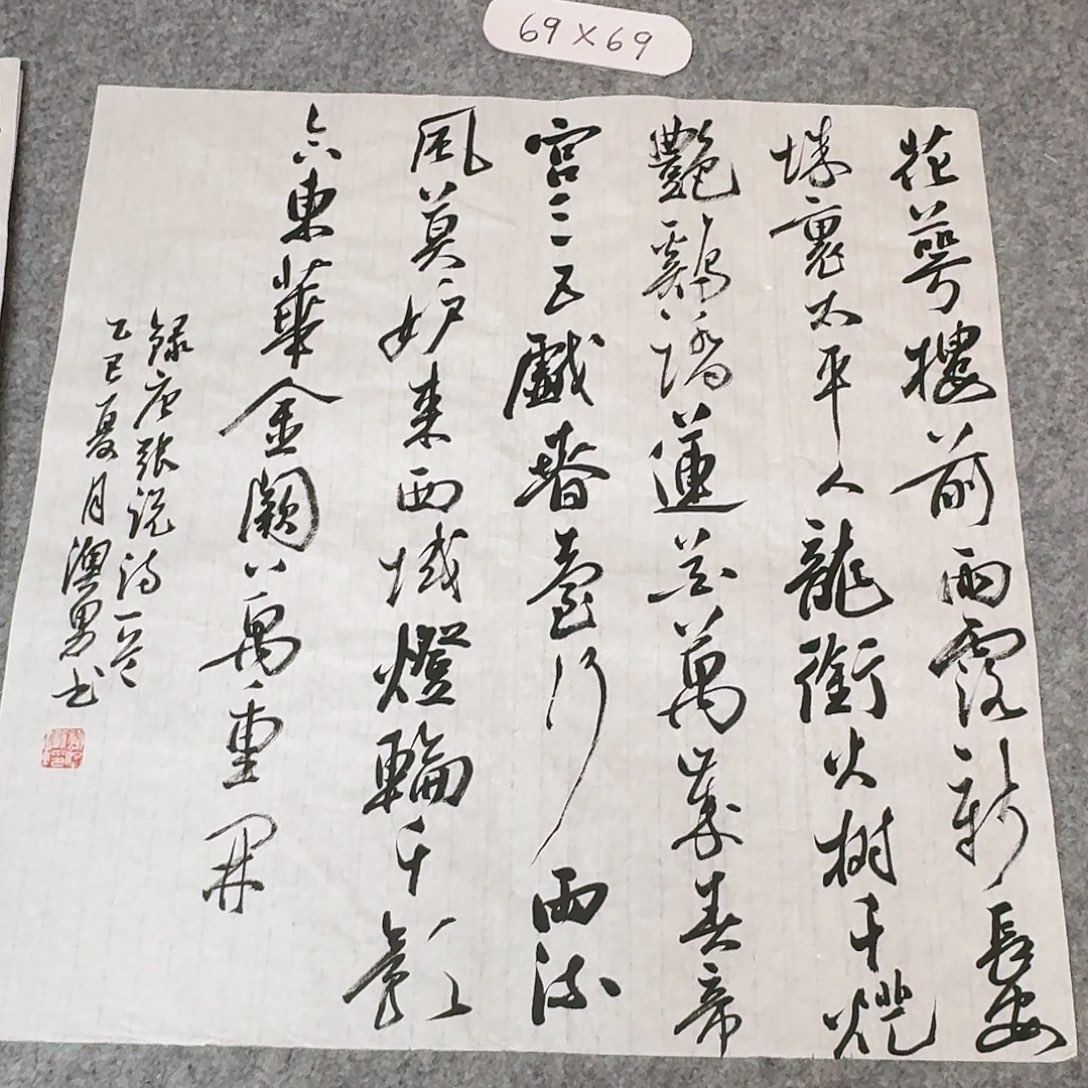 69×69
花萼樓前雨露新長安
城裏太平人龍銜火樹千燈
艷鷄踏蓮花萬歲春帝
宮三五戲春臺行雨流
風莫妒來西域燈輪千影
合東華金闕萬重開
錄唐張說詩一首
乙巳夏月澳男书